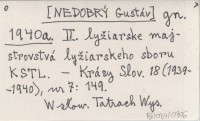 [NEDOBRÝ Gustáv] gn.
1940a. II. lyžiarske maj-
strovstvá lyžiarskeho sboru
KSTL. – Krásy Slov. 18 (1939-
-1940), nr 7: 149.
W słow. Tatrach Wys.